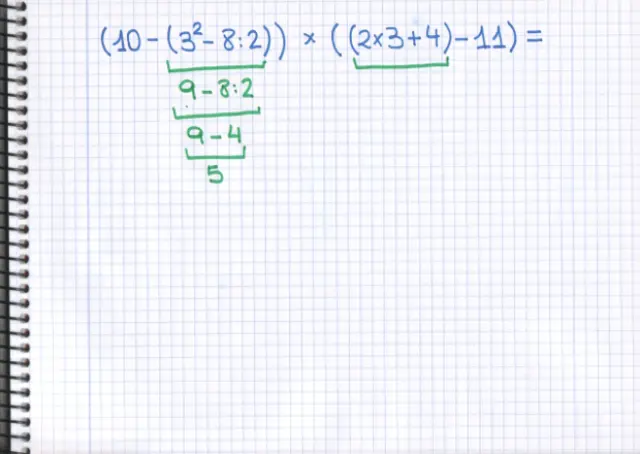 (10-(3²-8:2)) × ((2×3+4)-11)=
9-8:2
9-4
5